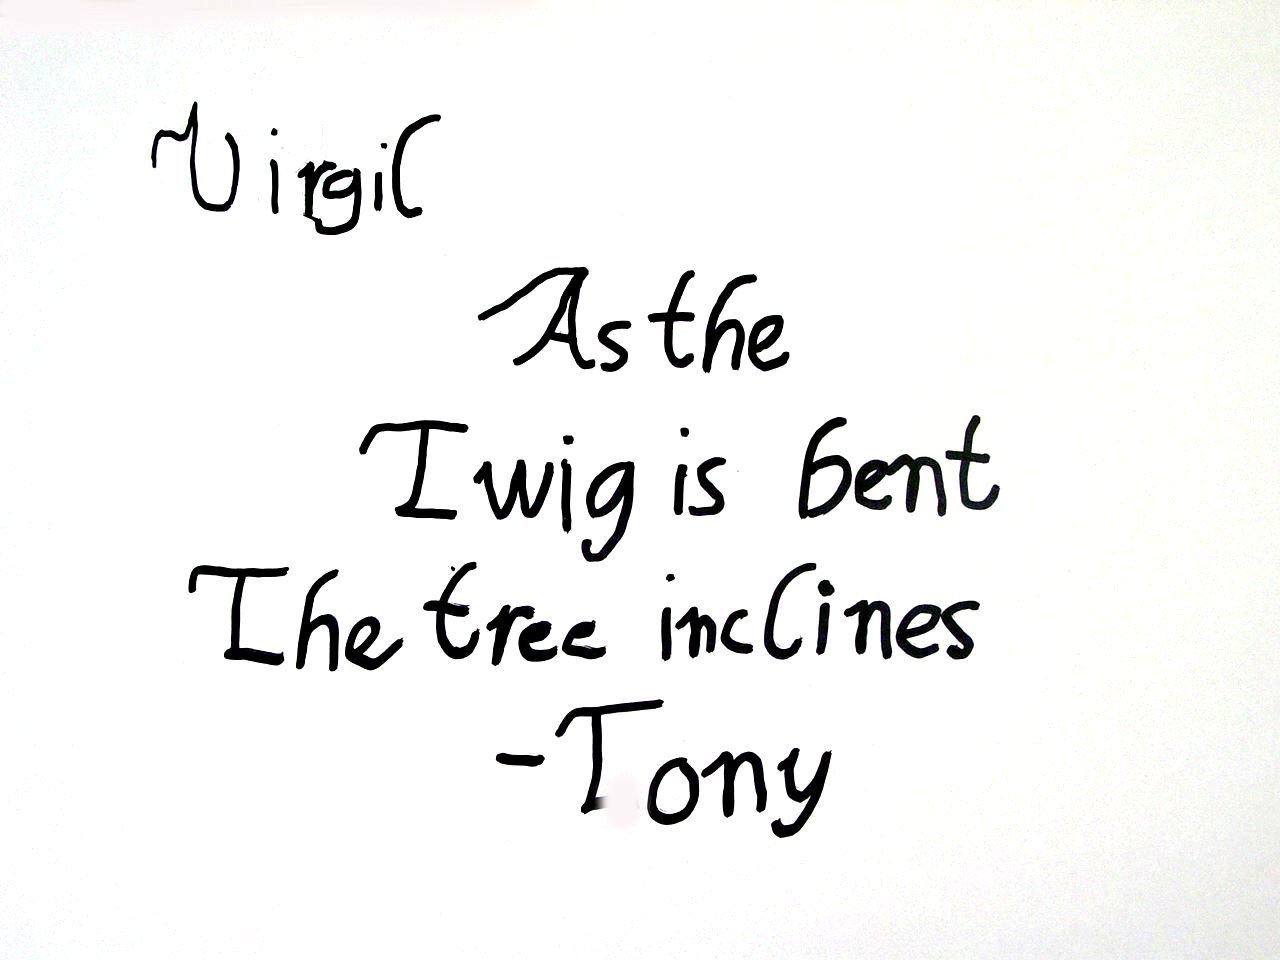 Virgil
As the
Twig is bent
The tree inclines
-Tony